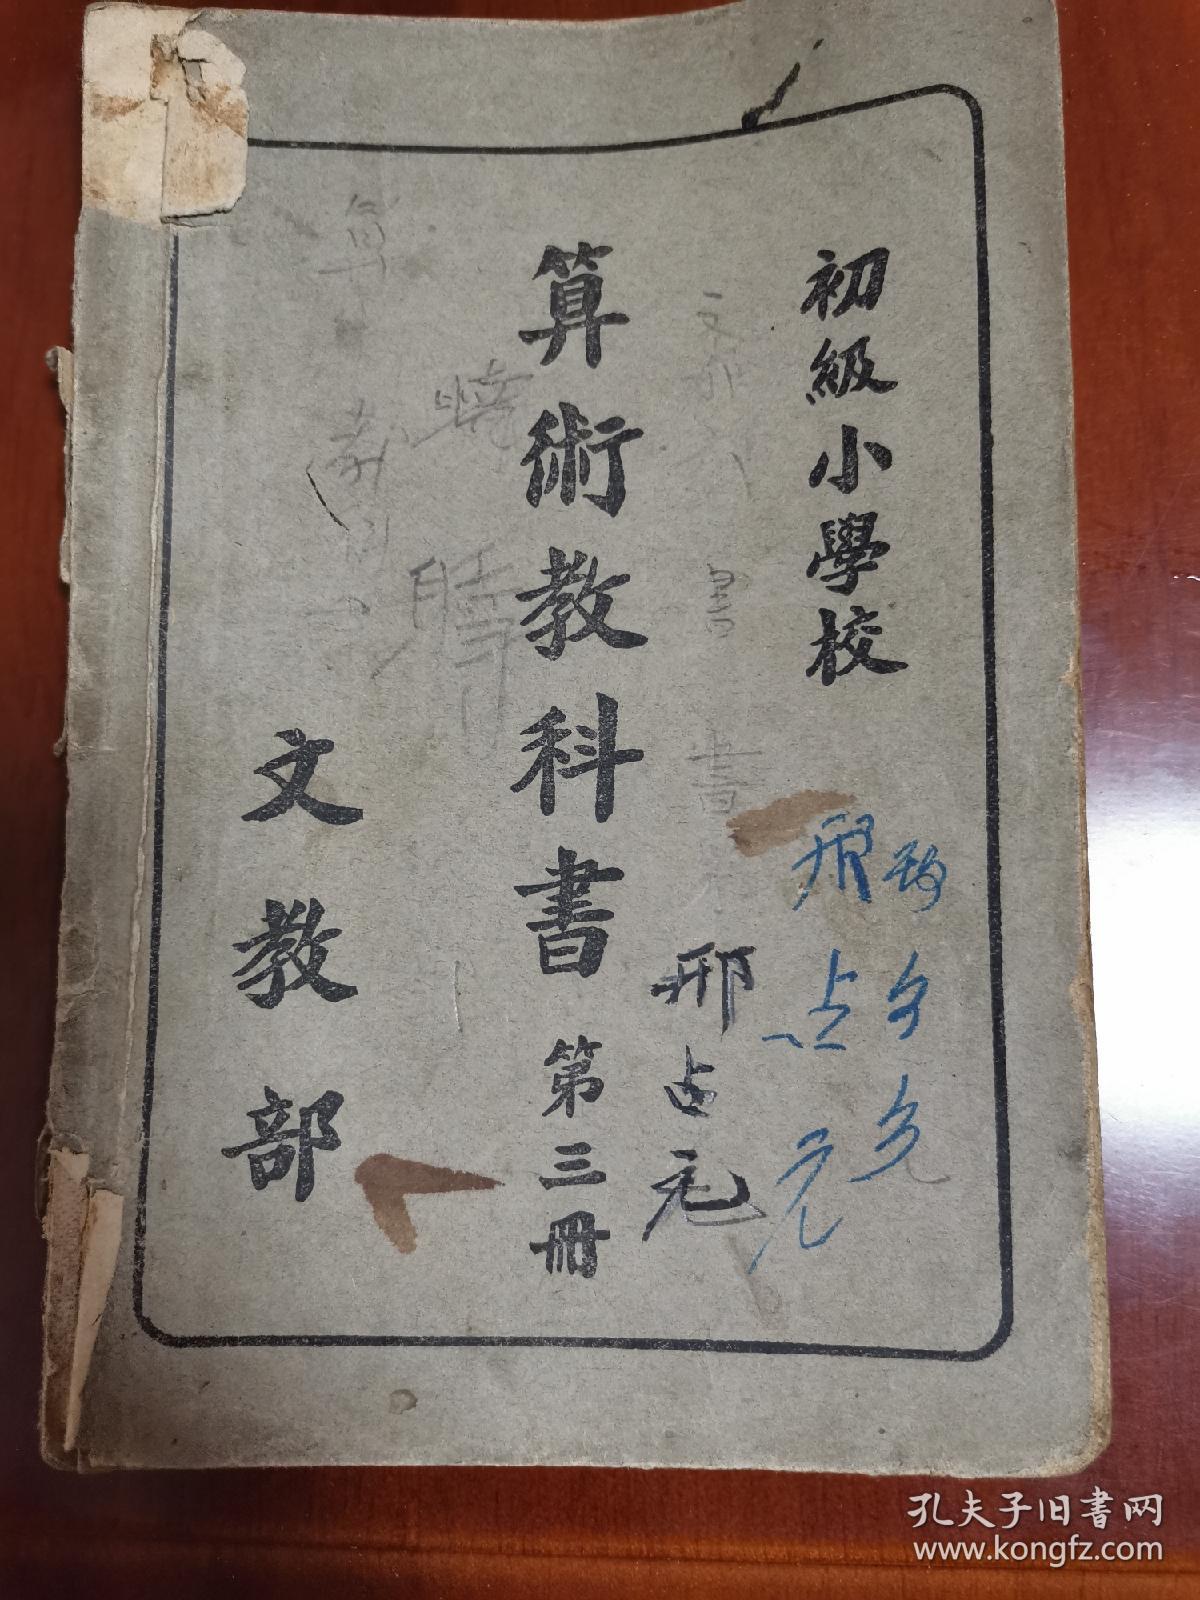 初級小學校
算術教科書 第三冊
文教部
邢占元
邢占元
孔夫子旧书网
www.kongfz.com